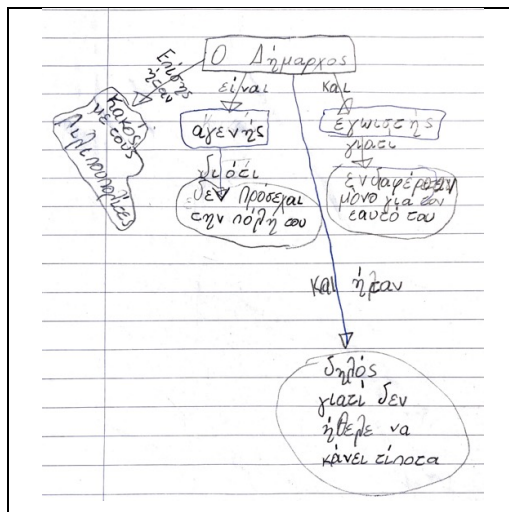 Ο Δήμαρχος
Επίσης
ήταν
κακός
με τους
Λιλιπουπολίτες
είναι
αγενής
διότι
δεν πρόσεχαι
την πόλη του
και
εγωιστής
γιατι
ενδιαφέρόταν
μόνο για τον
εαυτό του
και ήταν
δηλός
γιατί δεν
ήθελε να
κάνει τίποτα